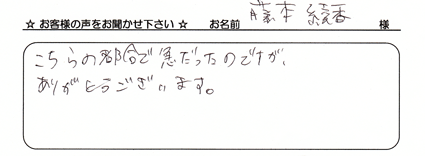 ☆ お客様の声をお聞かせ下さい ☆ お名前 藤本 綾香 様
こちらの都合で急だったのですが、
ありがとうございます。